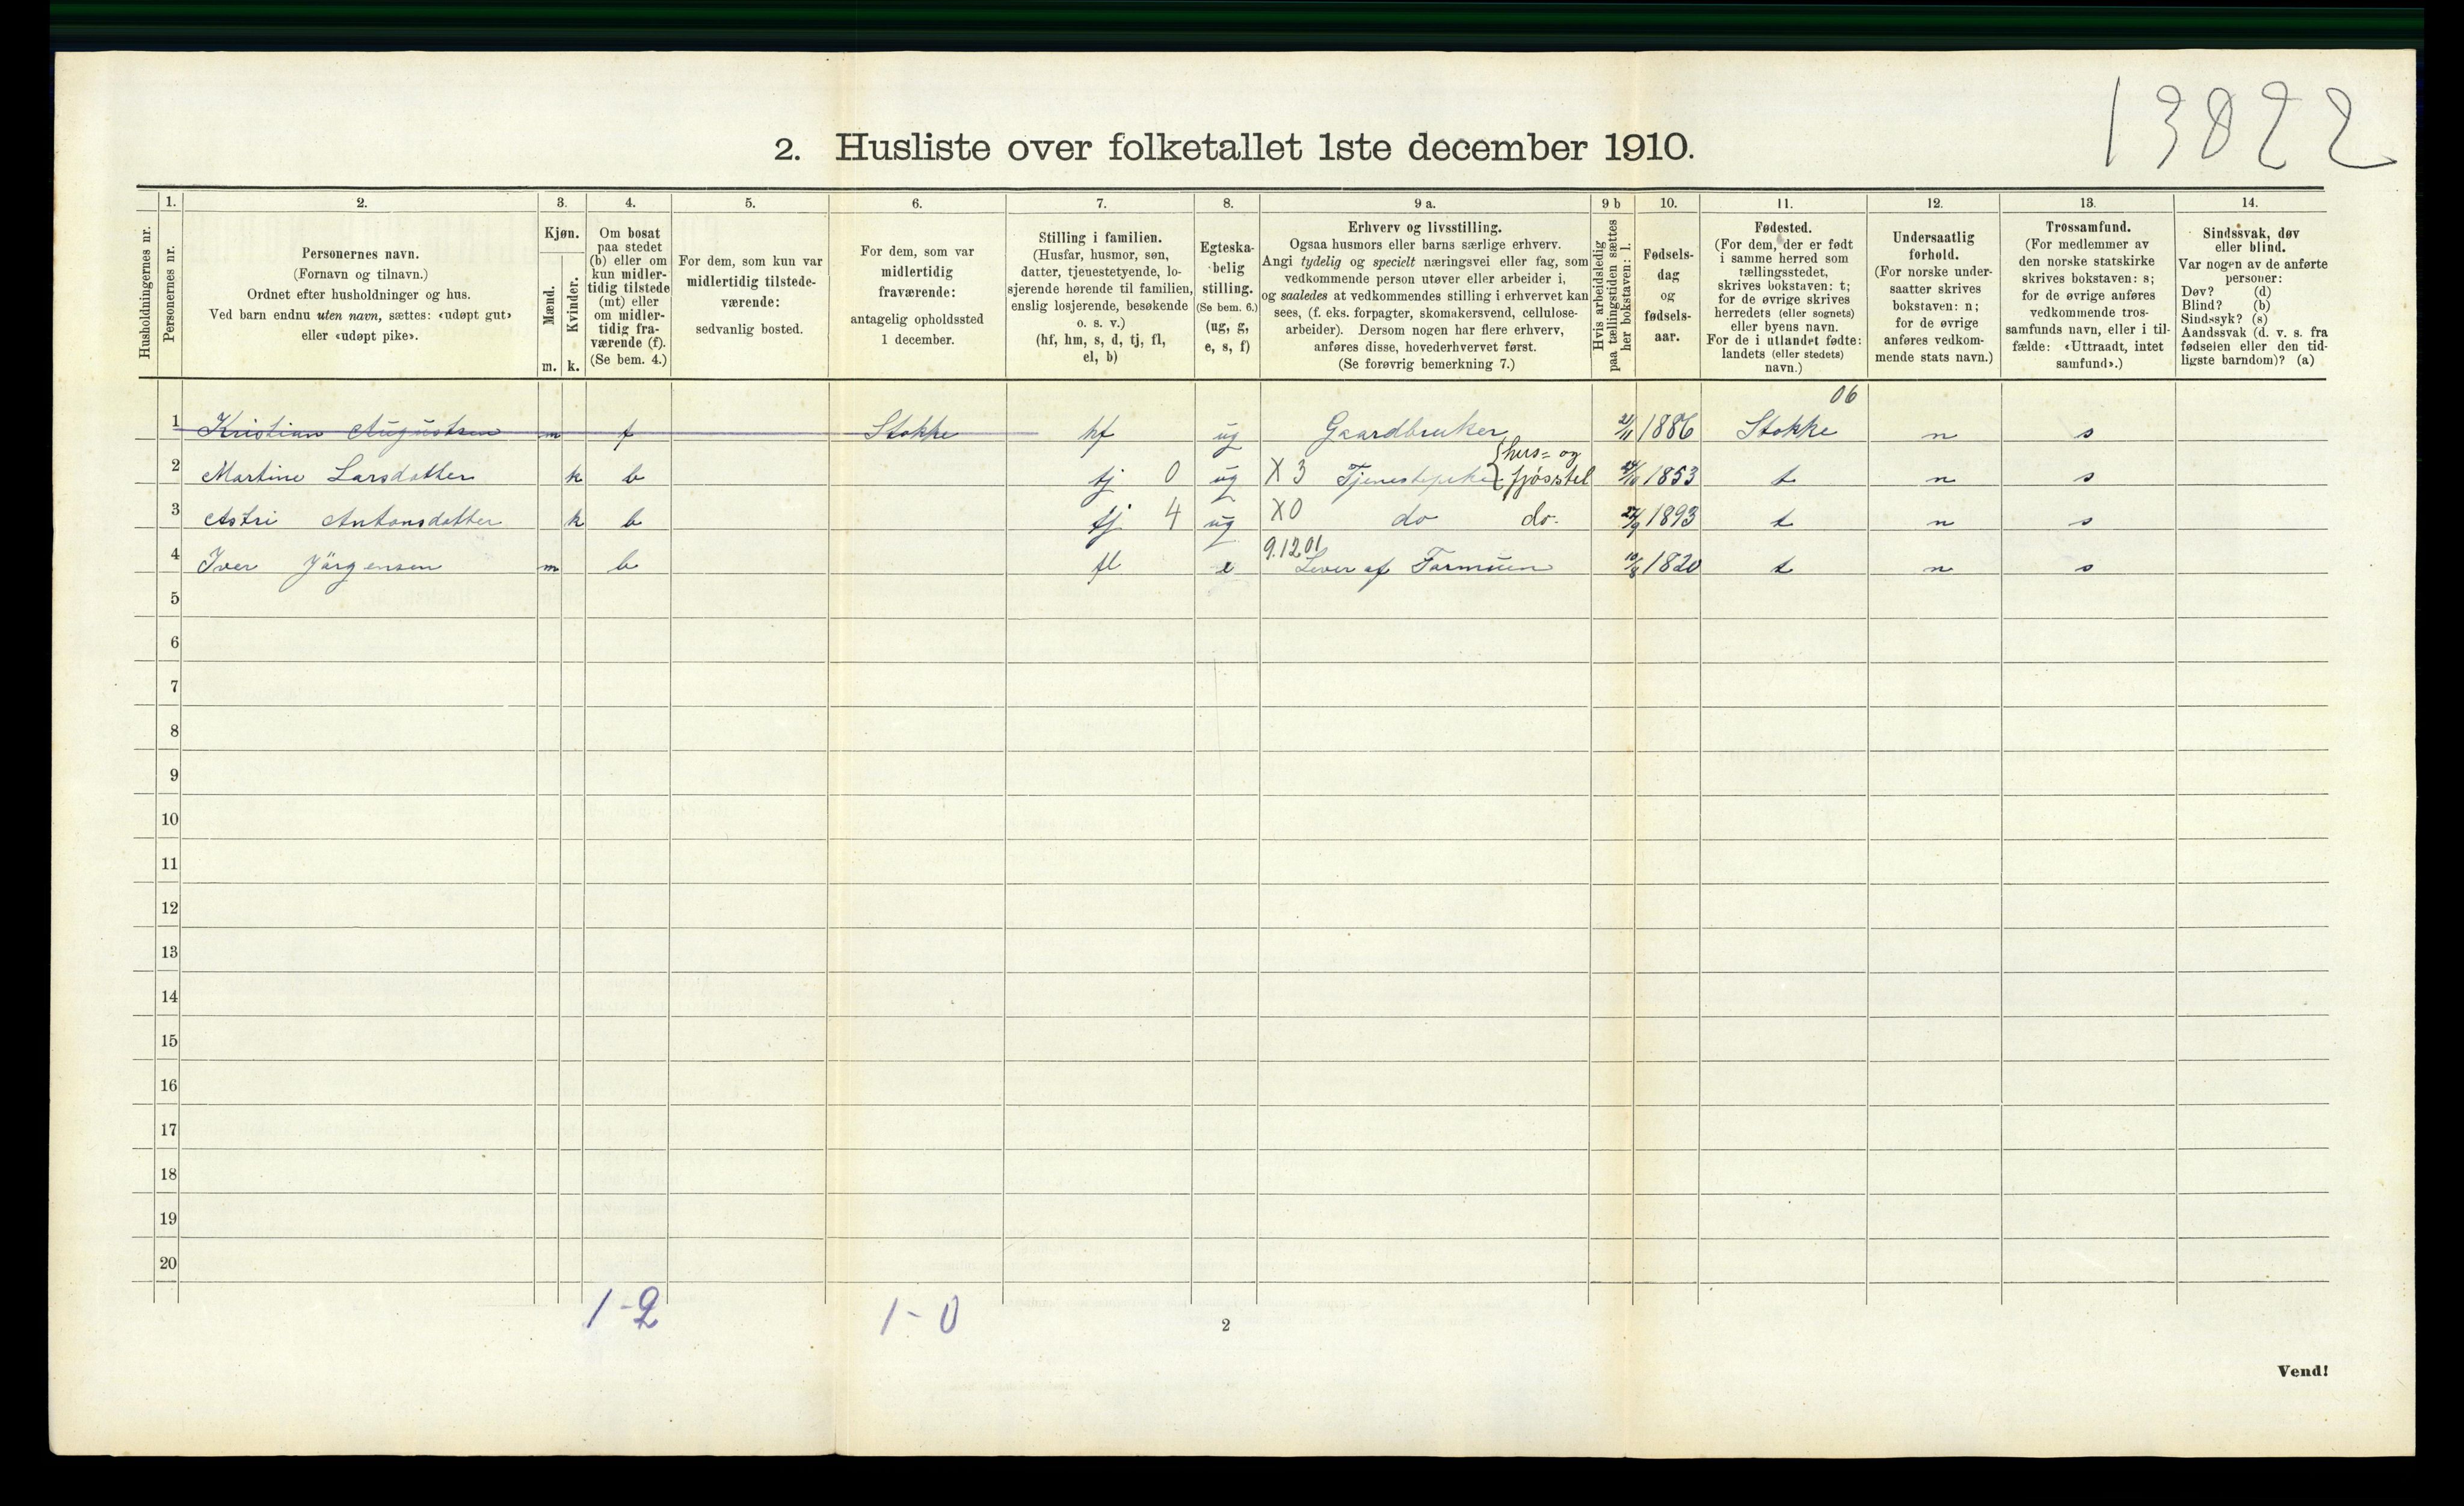 13822
2. Husliste over folketallet 1ste december 1910.
1. 2. 3. 4. 5. 6. 7. 8. 9 a. 9 b 10. 11. 12. 13. 14.
Husholdningernes nr.
Personernes nr.
Personernes navn.
(Fornavn og tilnavn.)
Ordnet efter husholdninger og hus.
Ved barn endnu uten navn, sættes: «udøpt gut»
eller «udøpt pike».
Kjøn.
Mænd.
Kvinder.
m. k.
Om bosat
paa stedet
(b) eller om
kun midler-
tidig tilstede
(mt) eller
om midler-
tidig fra-
værende (f).
(Se bem. 4.)
For dem, som kun var
midlertidig tilstede-
værende:
sedvanlig bosted.
For dem, som var
midlertidig
fraværende:
antagelig opholdssted
1 december.
Stilling i familien.
(Husfar, husmor, søn,
datter, tjenestetyende, lo-
sjerende hørende til familien,
enslig losjerende, besøkende
o. s. v.)
(hf, hm, s, d, tj, fl,
el, b)
Egteska-
belig
stilling.
(Se bem. 6.)
(ug, g,
e, s, f)
Erhverv og livsstilling.
Ogsaa husmors eller barns særlige erhverv.
Angi tydelig og specielt næringsvei eller fag, som
vedkommende person utøver eller arbeider i,
og saaledes at vedkommendes stilling i erhvervet kan
sees, (f. eks. forpagter, skomakersvend, cellulose-
arbeider). Dersom nogen har flere erhverv,
anføres disse, hovederhvervet først.
(Se forøvrig bemerkning 7.)
Hvis arbeidsledig
paa tællingstiden sættes
her bokstaven: l.
Fødsels-
dag
og
fødsels-
aar.
Fødested.
(For dem, der er født
i samme herred som
tællingsstedet,
skrives bokstaven: t;
for de øvrige skrives
herredets (eller sognets)
eller byens navn.
For de i utlandet fødte:
landets (eller stedets)
navn.)
Undersaatlig
forhold.
(For norske under-
saatter skrives
bokstaven: n;
for de øvrige
anføres vedkom-
mende stats navn.)
Trossamfund.
(For medlemmer av
den norske statskirke
skrives bokstaven: s;
for de øvrige anføres
vedkommende tros-
samfunds navn, eller i til-
fælde: «Uttraadt, intet
samfund».)
Sindssvak, døv
eller blind.
Var nogen av de anførte
personer:
Døv? (d)
Blind? (b)
Sindssyk? (s)
Aandssvak (d. v. s. fra
fødselen eller den tid-
ligste barndom)? (a)
06
1 Kristian Augustsen m f Stokke hf ug Gaardbruker 21/11 1886 Stokke n s
2 Martine Larsdatter k b tj 0 ug X 3 Tjenestepike { hus= og fjøsstel 1853 t n s
3 Astri Antonsdatter k b tj 4 ug X0 do do. 1893 t n s
9.1201
4 Iver Jörgensen m b fl e Lever af Formuen 10/8 1820 t n s
5
6
7
8
9
10
11
12
13
14
15
16
17
18
19
20
1-2 1-0
2
Vend!